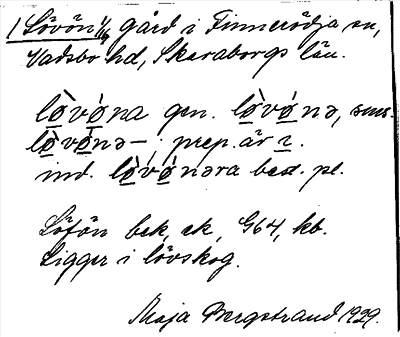 1 Lövön 1/16 gård i Finnerödja sn,
Vadsbo hd, Skaraborgs län.
lø̀vóna gen. lø̀vónə, sms.
lø̀vónə–; prep. är i.
ind. lø̀vónəra best. pl.
Löfön bek, ek, G64, kb.
Ligger i lövskog.
Maja Bergstrand 1929.